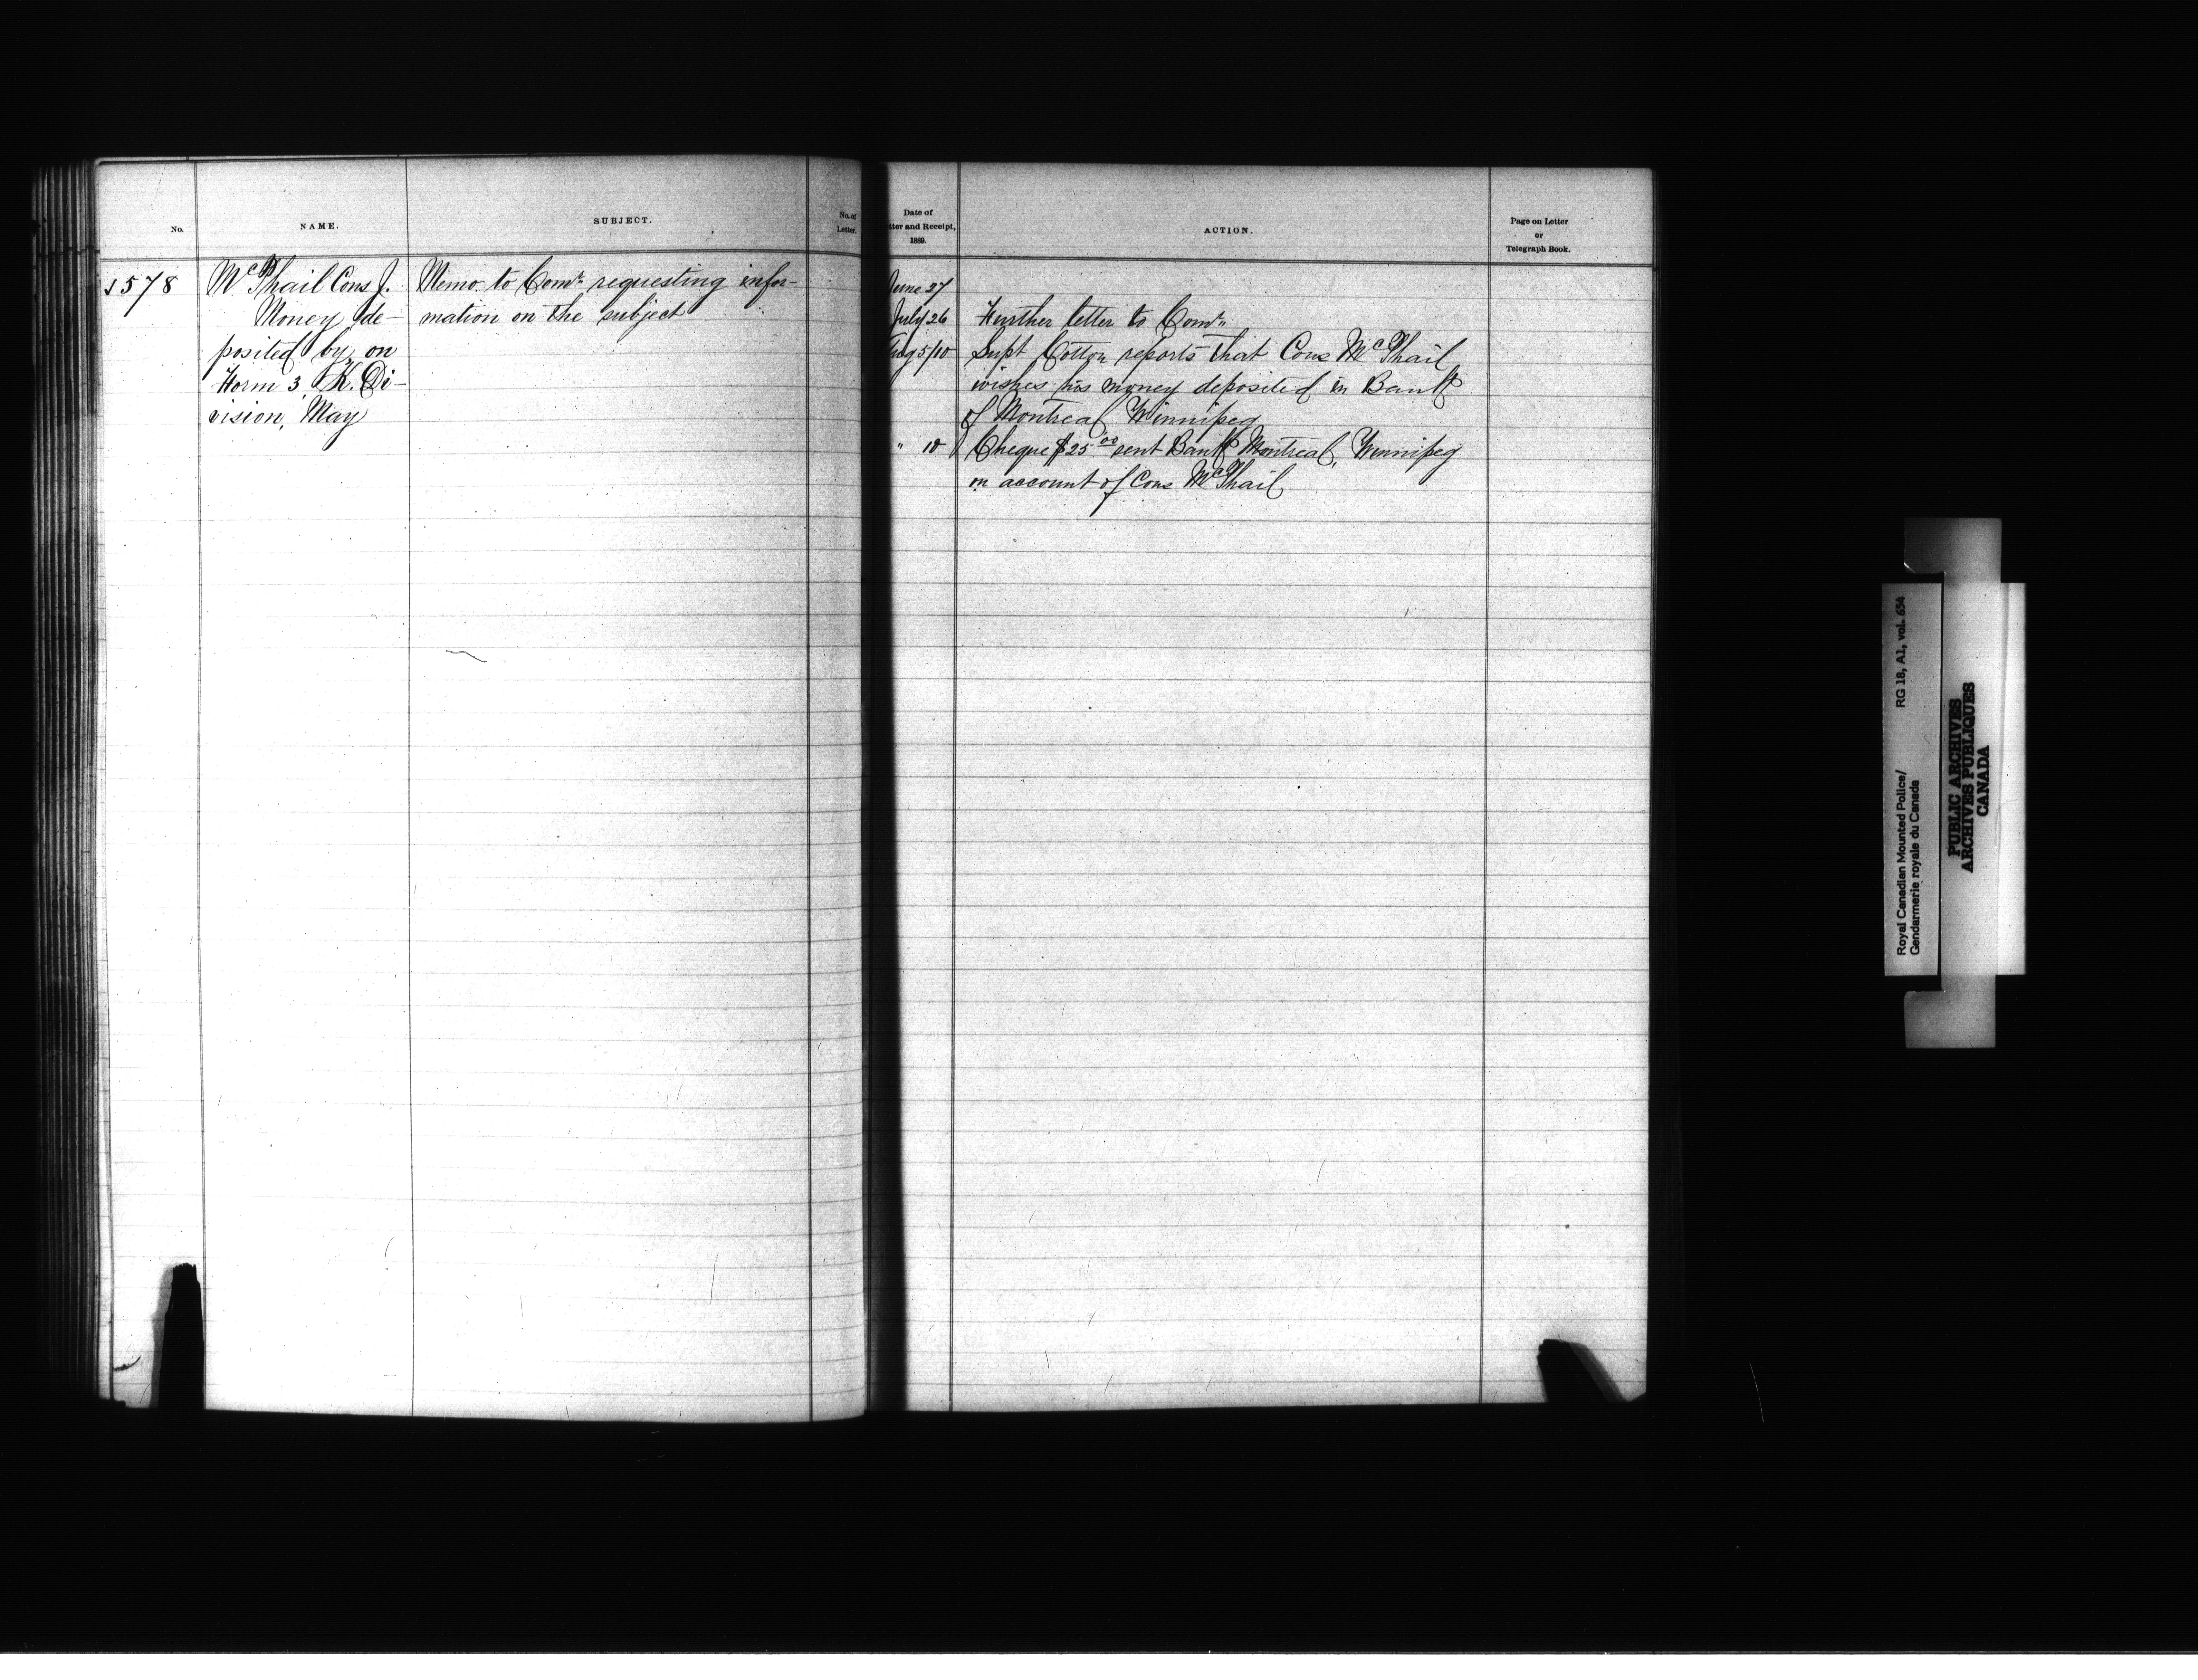 No.
NAME.
SUBJECT.
No. of
Letter.
1578
McPhail Cons J.
Money de-
posited by, on
Form 3, K. Di-
vision, May
Memo. to Comr. requesting infor-
mation on the subject
Date of
tter and Receipt,
1889.
ACTION.
Page on Letter
or
Telegraph Book.
June 27
July 26 Further letter to Comr.
Aug 5/10 Supt Cotton reports that Cons McPhail
wishes his money deposited in Bank
of Montreal Winnipeg
" 10 Cheque $25 00 sent Bank Montreal, Winnipeg
on account of Cons McPhail
Royal Canadian Mounted Police/ RG 18, A1, vol. 654
Gendarmerie royale du Canada
PUBLIC ARCHIVES
ARCHIVES PUBLIQUES
CANADA